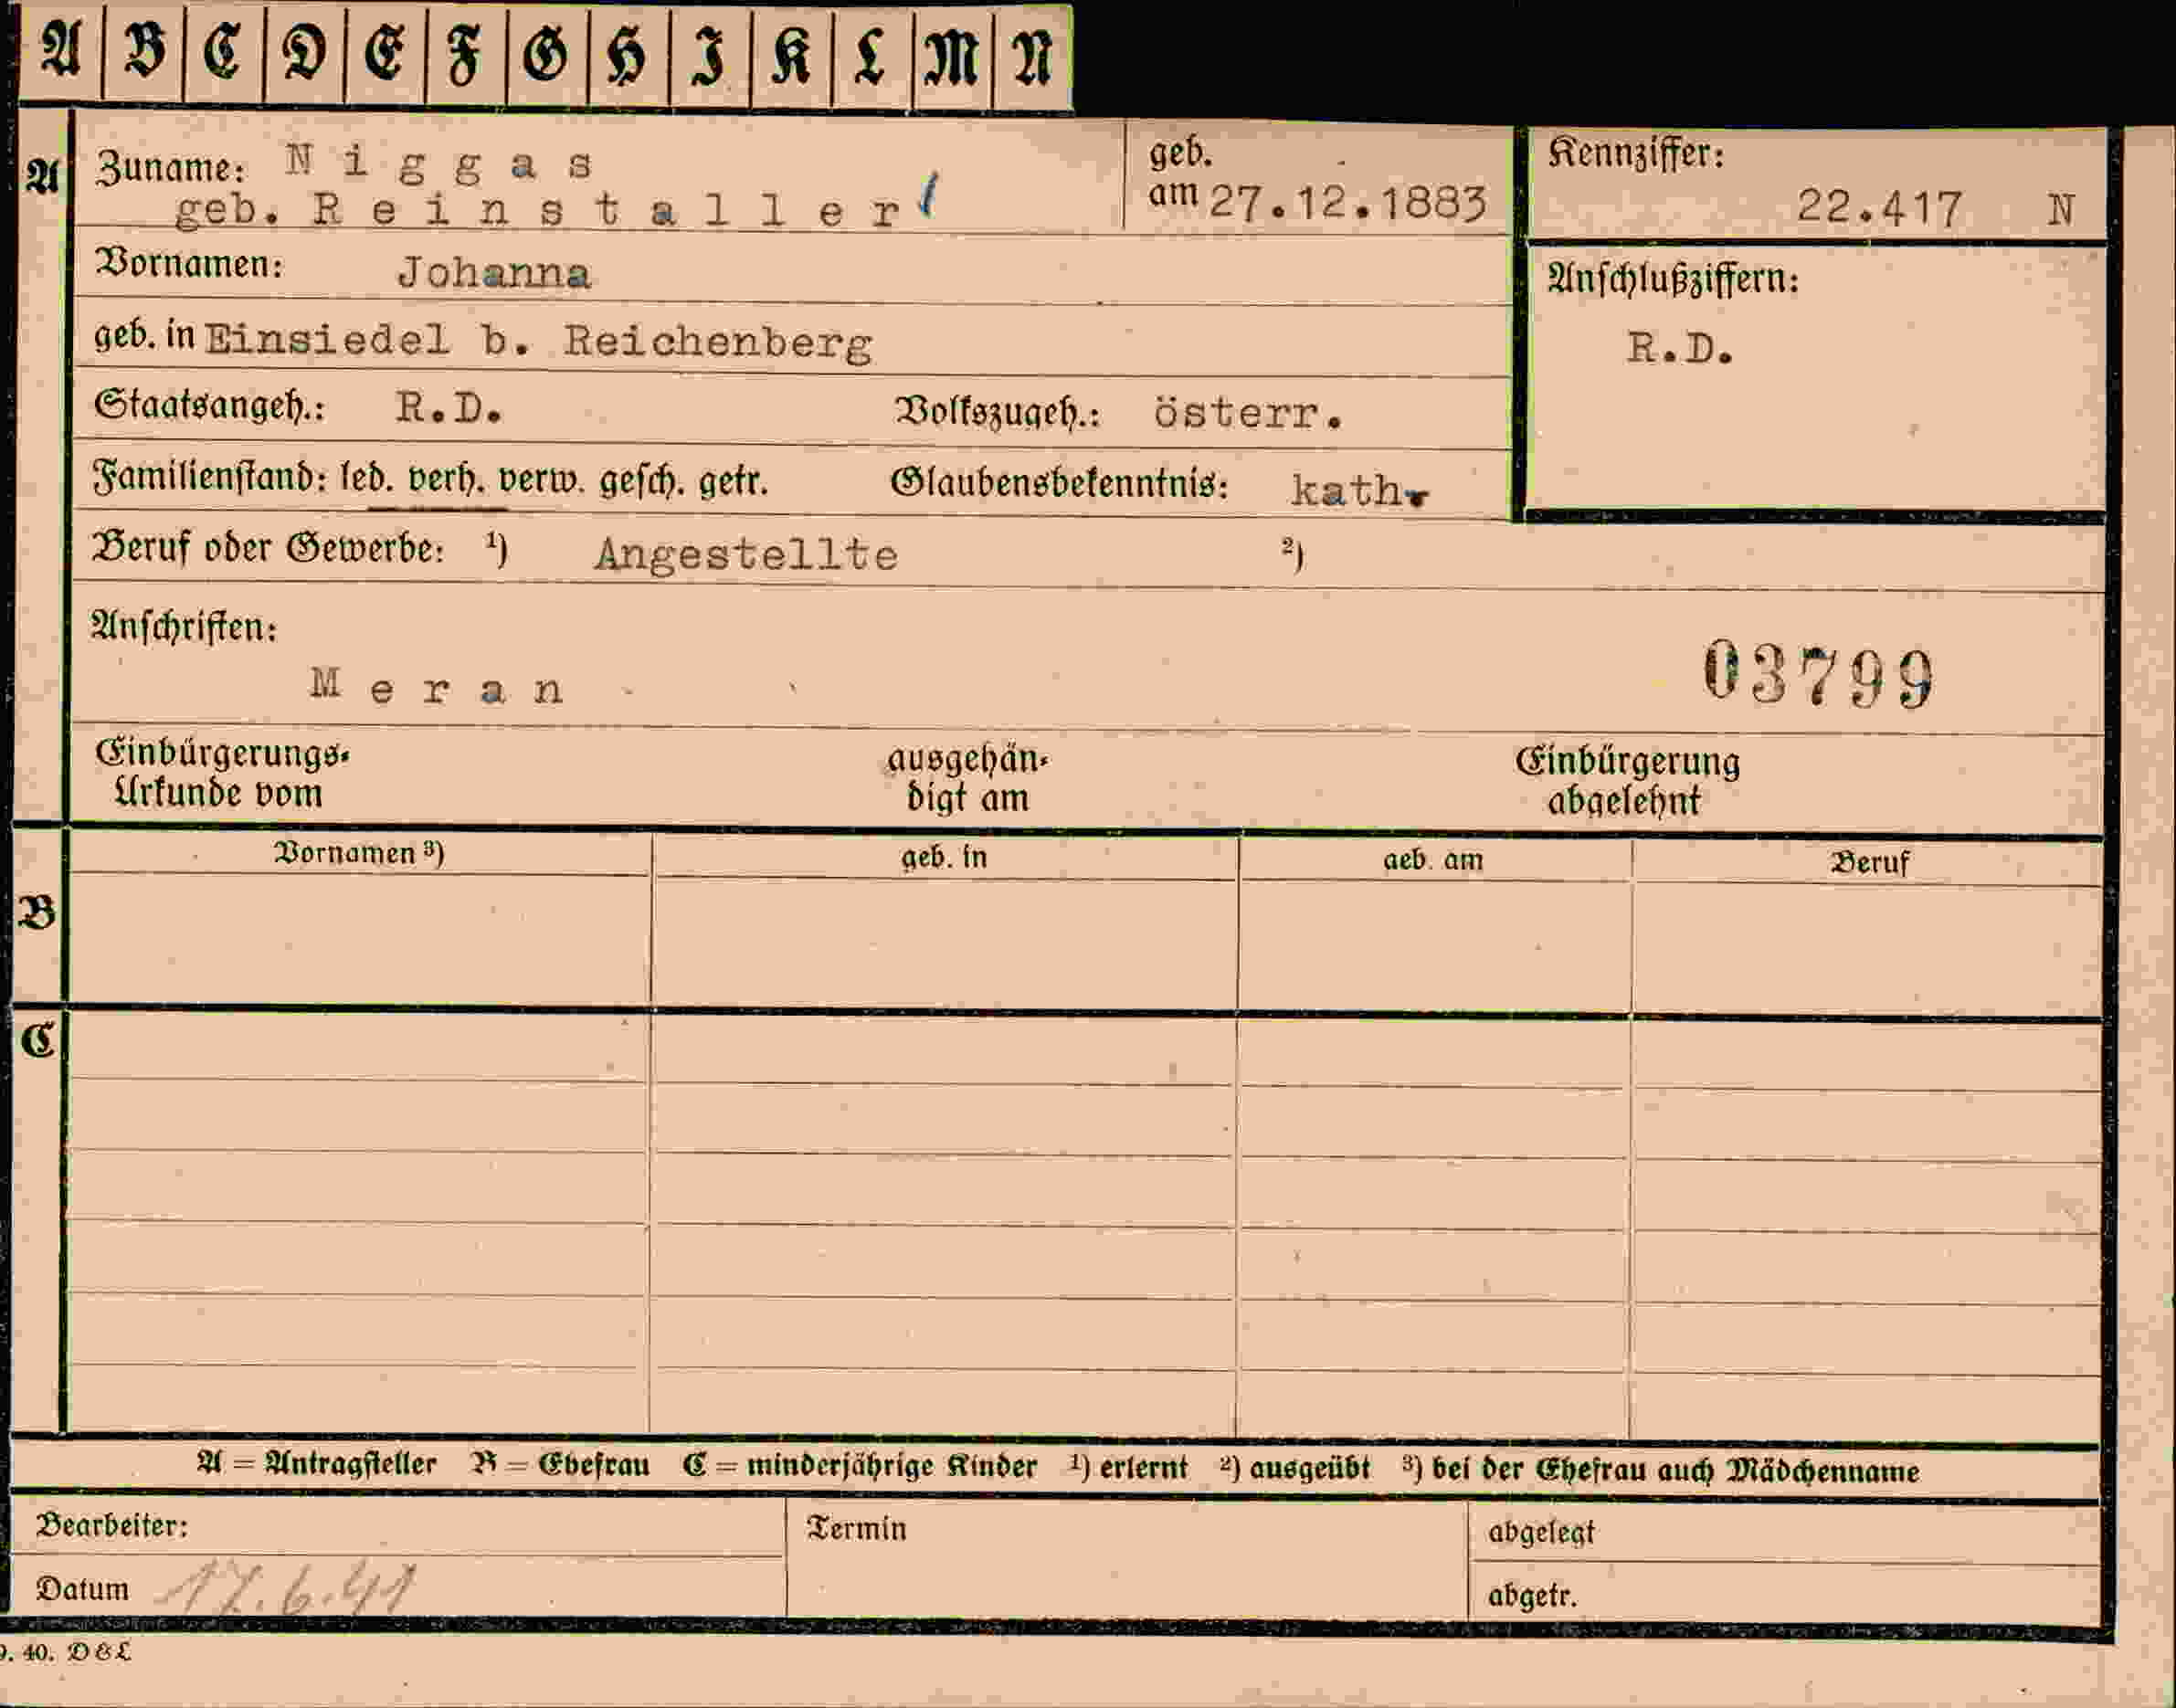 A B C D E F G H I K L M N
A Zuname: Niggas geb. Kennziffer:
geb. Reinstaller am 27.12.1883 22.417 N
Vornamen: Johanna Anschlußziffern:
geb. in Einsiedel b. Reichenberg R.D.
Staatsangeh.: R.D. Volkszugeh.: österr.
Familienstand: led. verh. verw. gesch. getr. Glaubensbekenntnis: kath.
Beruf oder Gewerbe: ¹) Angestellte ²)
Anschriften:
Meran 03799
Einbürgerungs- ausgehän- Einbürgerung
Urkunde vom digt am abgelehnt
Vornamen ³) geb. in geb. am Beruf
B
C
A = Antragsteller B = Ehefrau C = minderjährige Kinder ¹) erlernt ²) ausgeübt ³) bei der Ehefrau auch Mädchenname
Bearbeiter: Termin abgelegt
Datum 17.6.41 abgetr.
9. 40. D&L